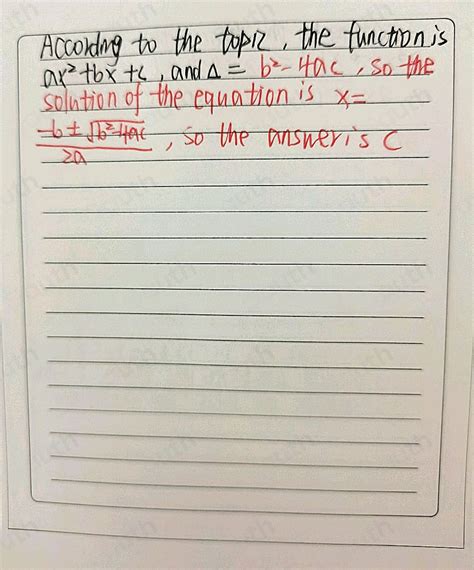 According to the topic, the function is
ax²+bx+c, and Δ= b²-4ac, so the
solution of the equation is x=
-b±√b²-4ac
2a
, so the answer is C